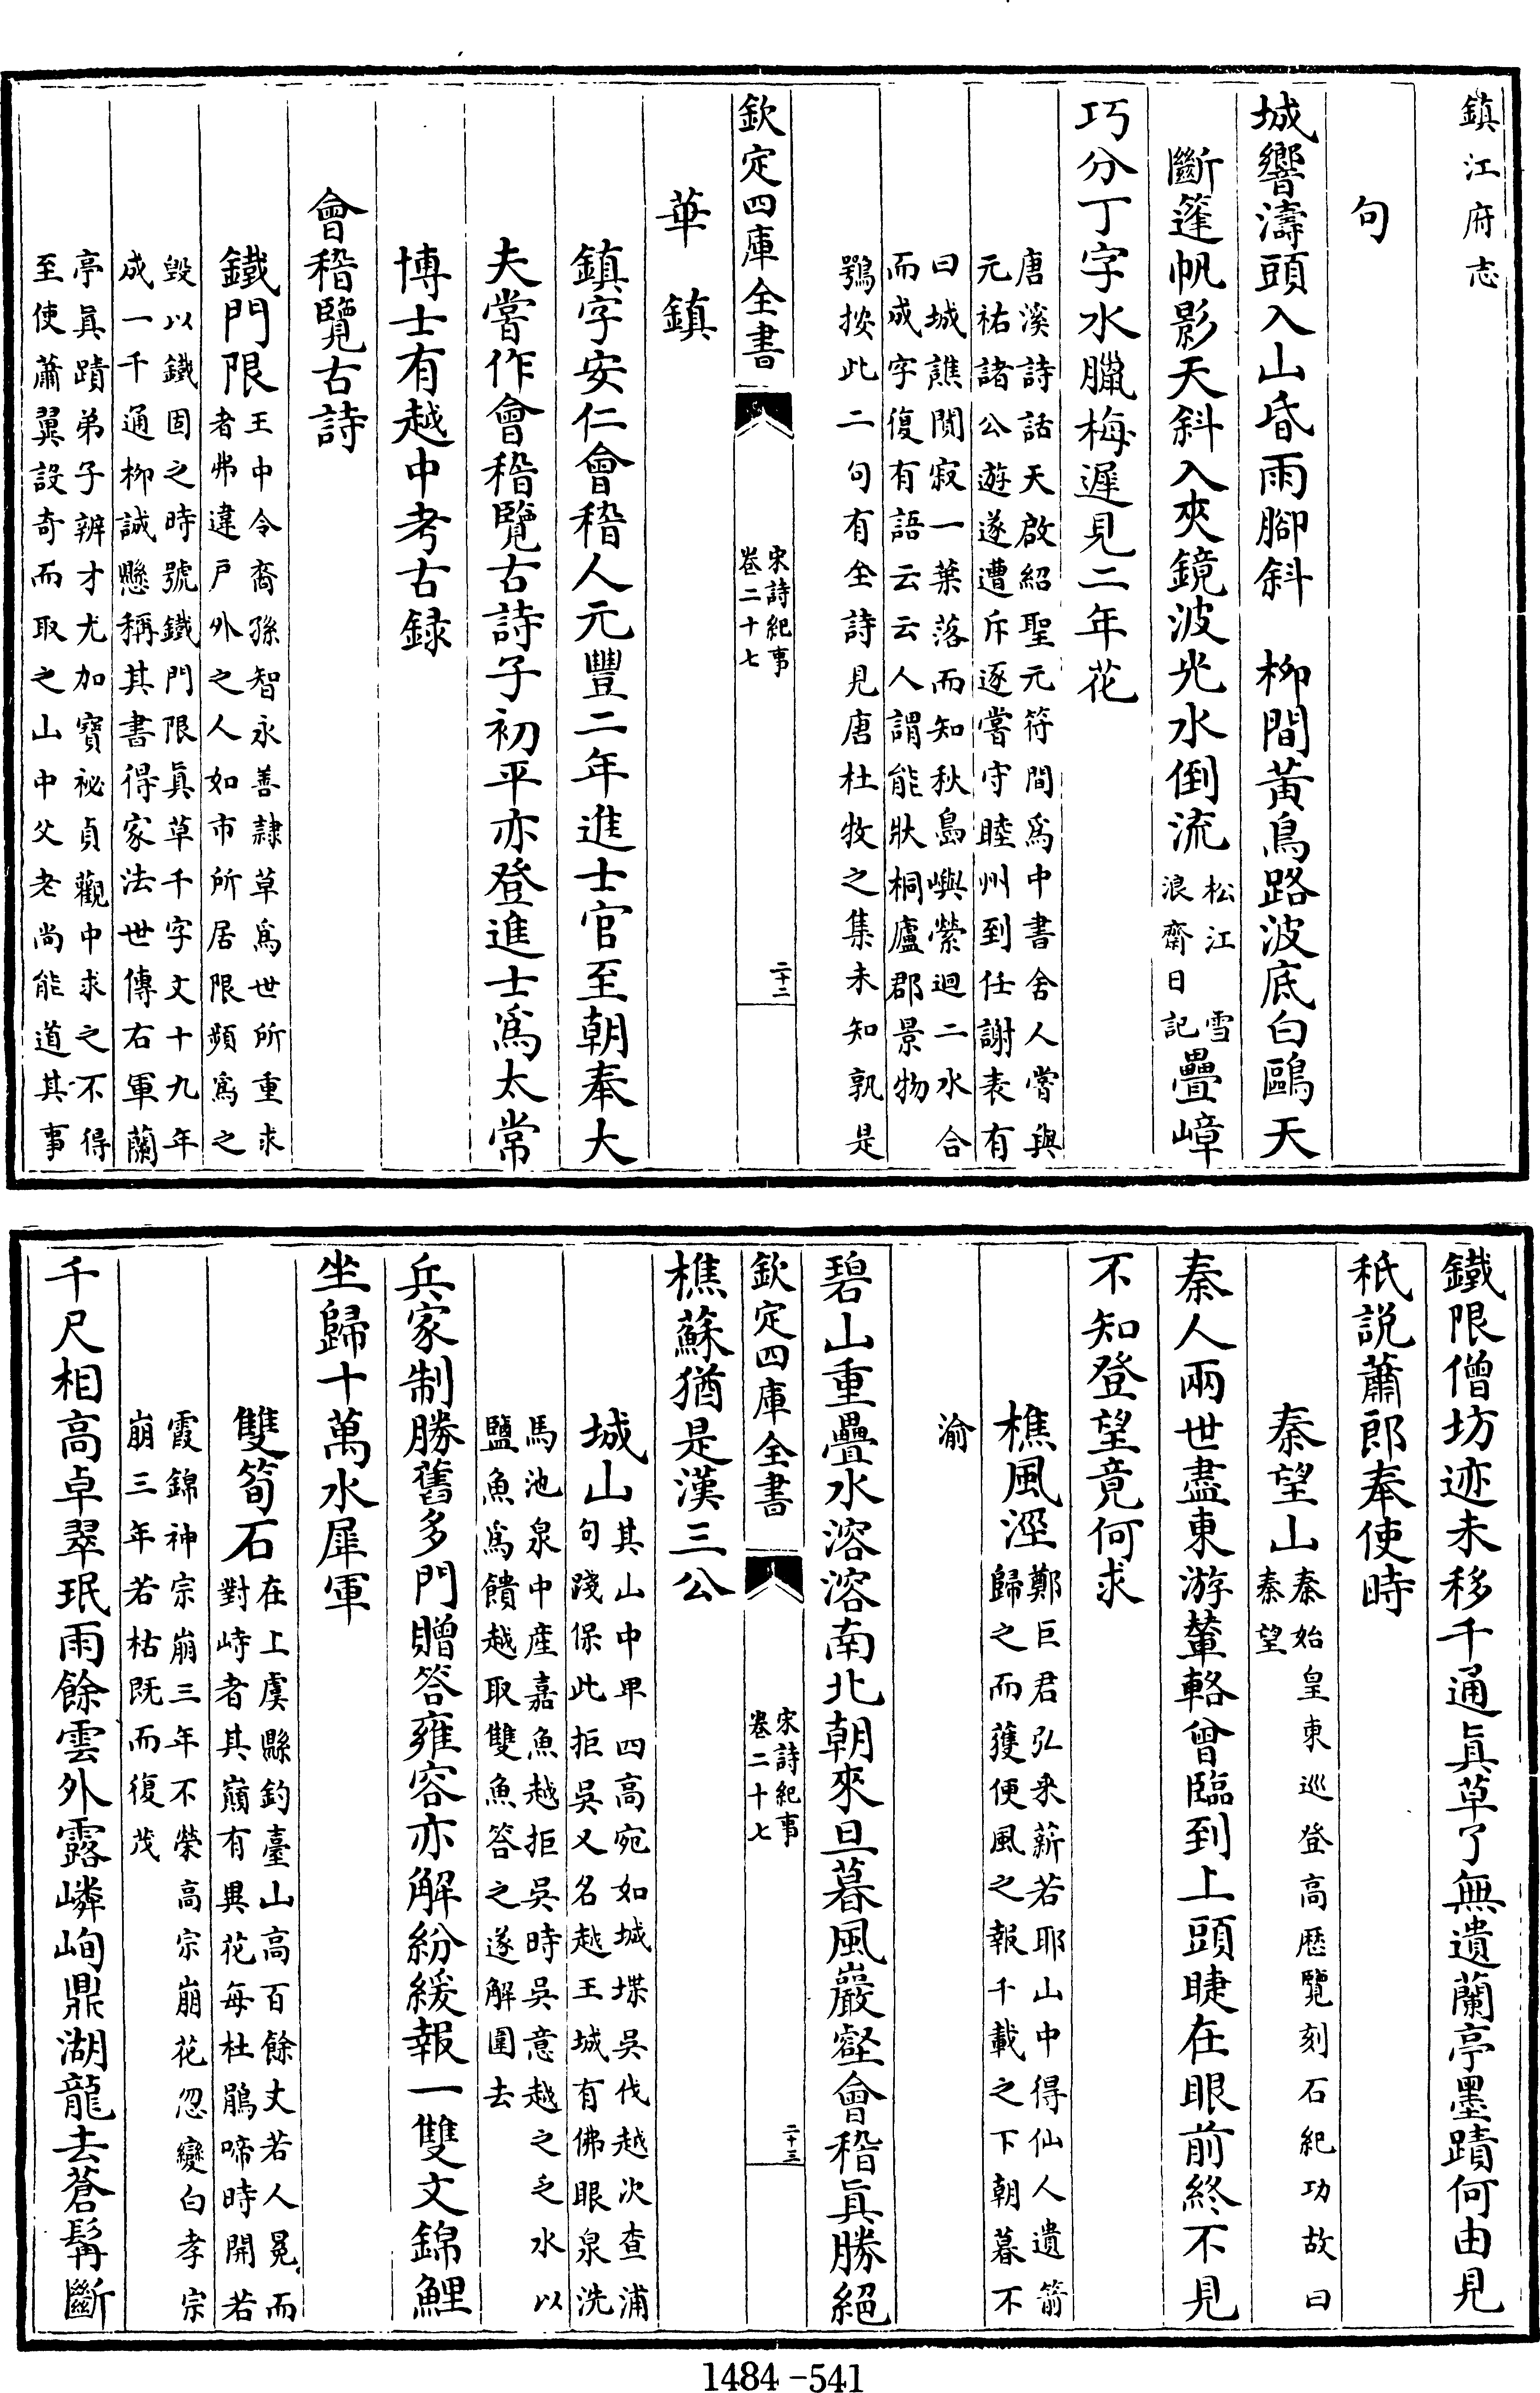 鎮江府志
句
城響濤頭入山昏雨腳斜　柳間黄鳥路波底白鷗天
斷篷帆影天斜入夾鏡波光水倒流松江雪
浪齋日記疊嶂
巧分丁字水臘梅遲見二年花
唐溪詩話天啟紹聖元符間為中書舍人嘗與
元祐諸公遊遂遭斥逐嘗守睦州到任謝表有
曰城譙閴寂一葉落而知秋島嶼縈迴二水合
而成字復有語云云人謂能狀桐廬郡景物
鶚按此二句有全詩見唐杜牧之集未知孰是
欽定四庫全書
宋詩紀事
卷二十七
二十二
華鎮
鎮字安仁會稽人元豐二年進士官至朝奉大
夫嘗作會稽覽古詩子初平亦登進士為太常
博士有越中考古録
會稽覽古詩
鐵門限王中令裔孫智永善隷草為世所重求
者弗違戶外之人如市所居限頻為之
毁以鐵固之時號鐵門限真草千字文十九年
成一千通柳誠懸稱其書得家法世傳右軍蘭
亭真蹟弟子辨才尤加寶祕貞觀中求之不得
至使蕭翼設奇而取之山中父老尚能道其事
鐵限僧坊迹未移千通真草了無遺蘭亭墨蹟何由見
秖説蕭郎奉使時
秦望山秦始皇東巡登高歷覽刻石紀功故曰
秦望
秦人兩世盡東游輦輅曾臨到上頭睫在眼前終不見
不知登望竟何求
樵風涇鄭巨君弘采薪若耶山中得仙人遺箭
歸之而獲便風之報千載之下朝暮不
渝
碧山重疊水溶溶南北朝來旦暮風巖壑會稽真勝絕
欽定四庫全書
宋詩紀事
卷二十七
二十三
樵蘇猶是漢三公
城山其山中卑四高宛如城堞吳伐越次查浦
句踐保此拒吳又名越王城有佛眼泉洗
馬池泉中產嘉魚越拒吳時吳意越之乏水以
鹽魚為饋越取雙魚答之遂解圍去
兵家制勝舊多門贈答雍容亦解紛緩報一雙文錦鯉
坐歸十萬水犀軍
雙筍石在上虞縣釣臺山高百餘丈若人冕而
對峙者其巔有異花每杜鵑啼時開若
霞錦神宗崩三年不榮高宗崩花忽變白孝宗
崩三年若枯既而復茂
千尺相高卓翠珉雨餘雲外露嶙峋鼎湖龍去蒼髯斷
1484-541